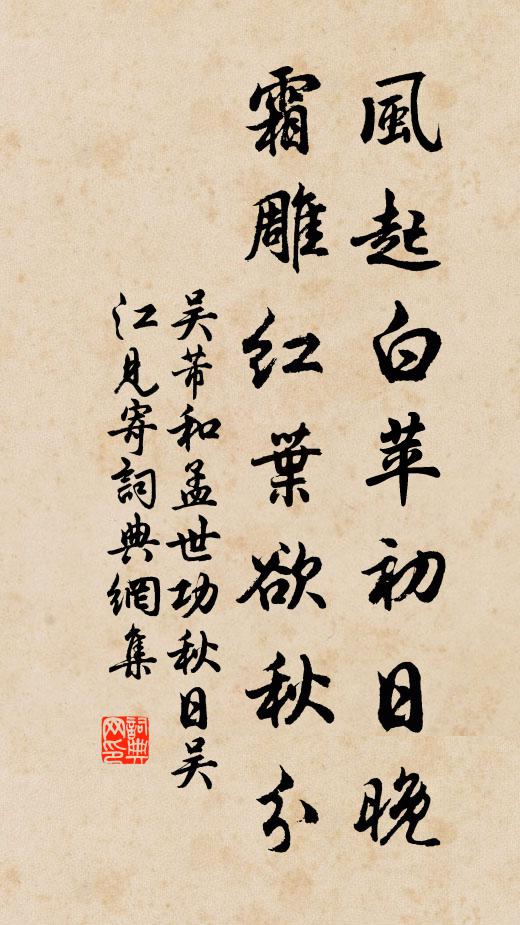 風起白苹初日晚
霜雕紅葉欲秋分
吴芾和孟世功秋日吴
江見寄詞典網集
詞典網印